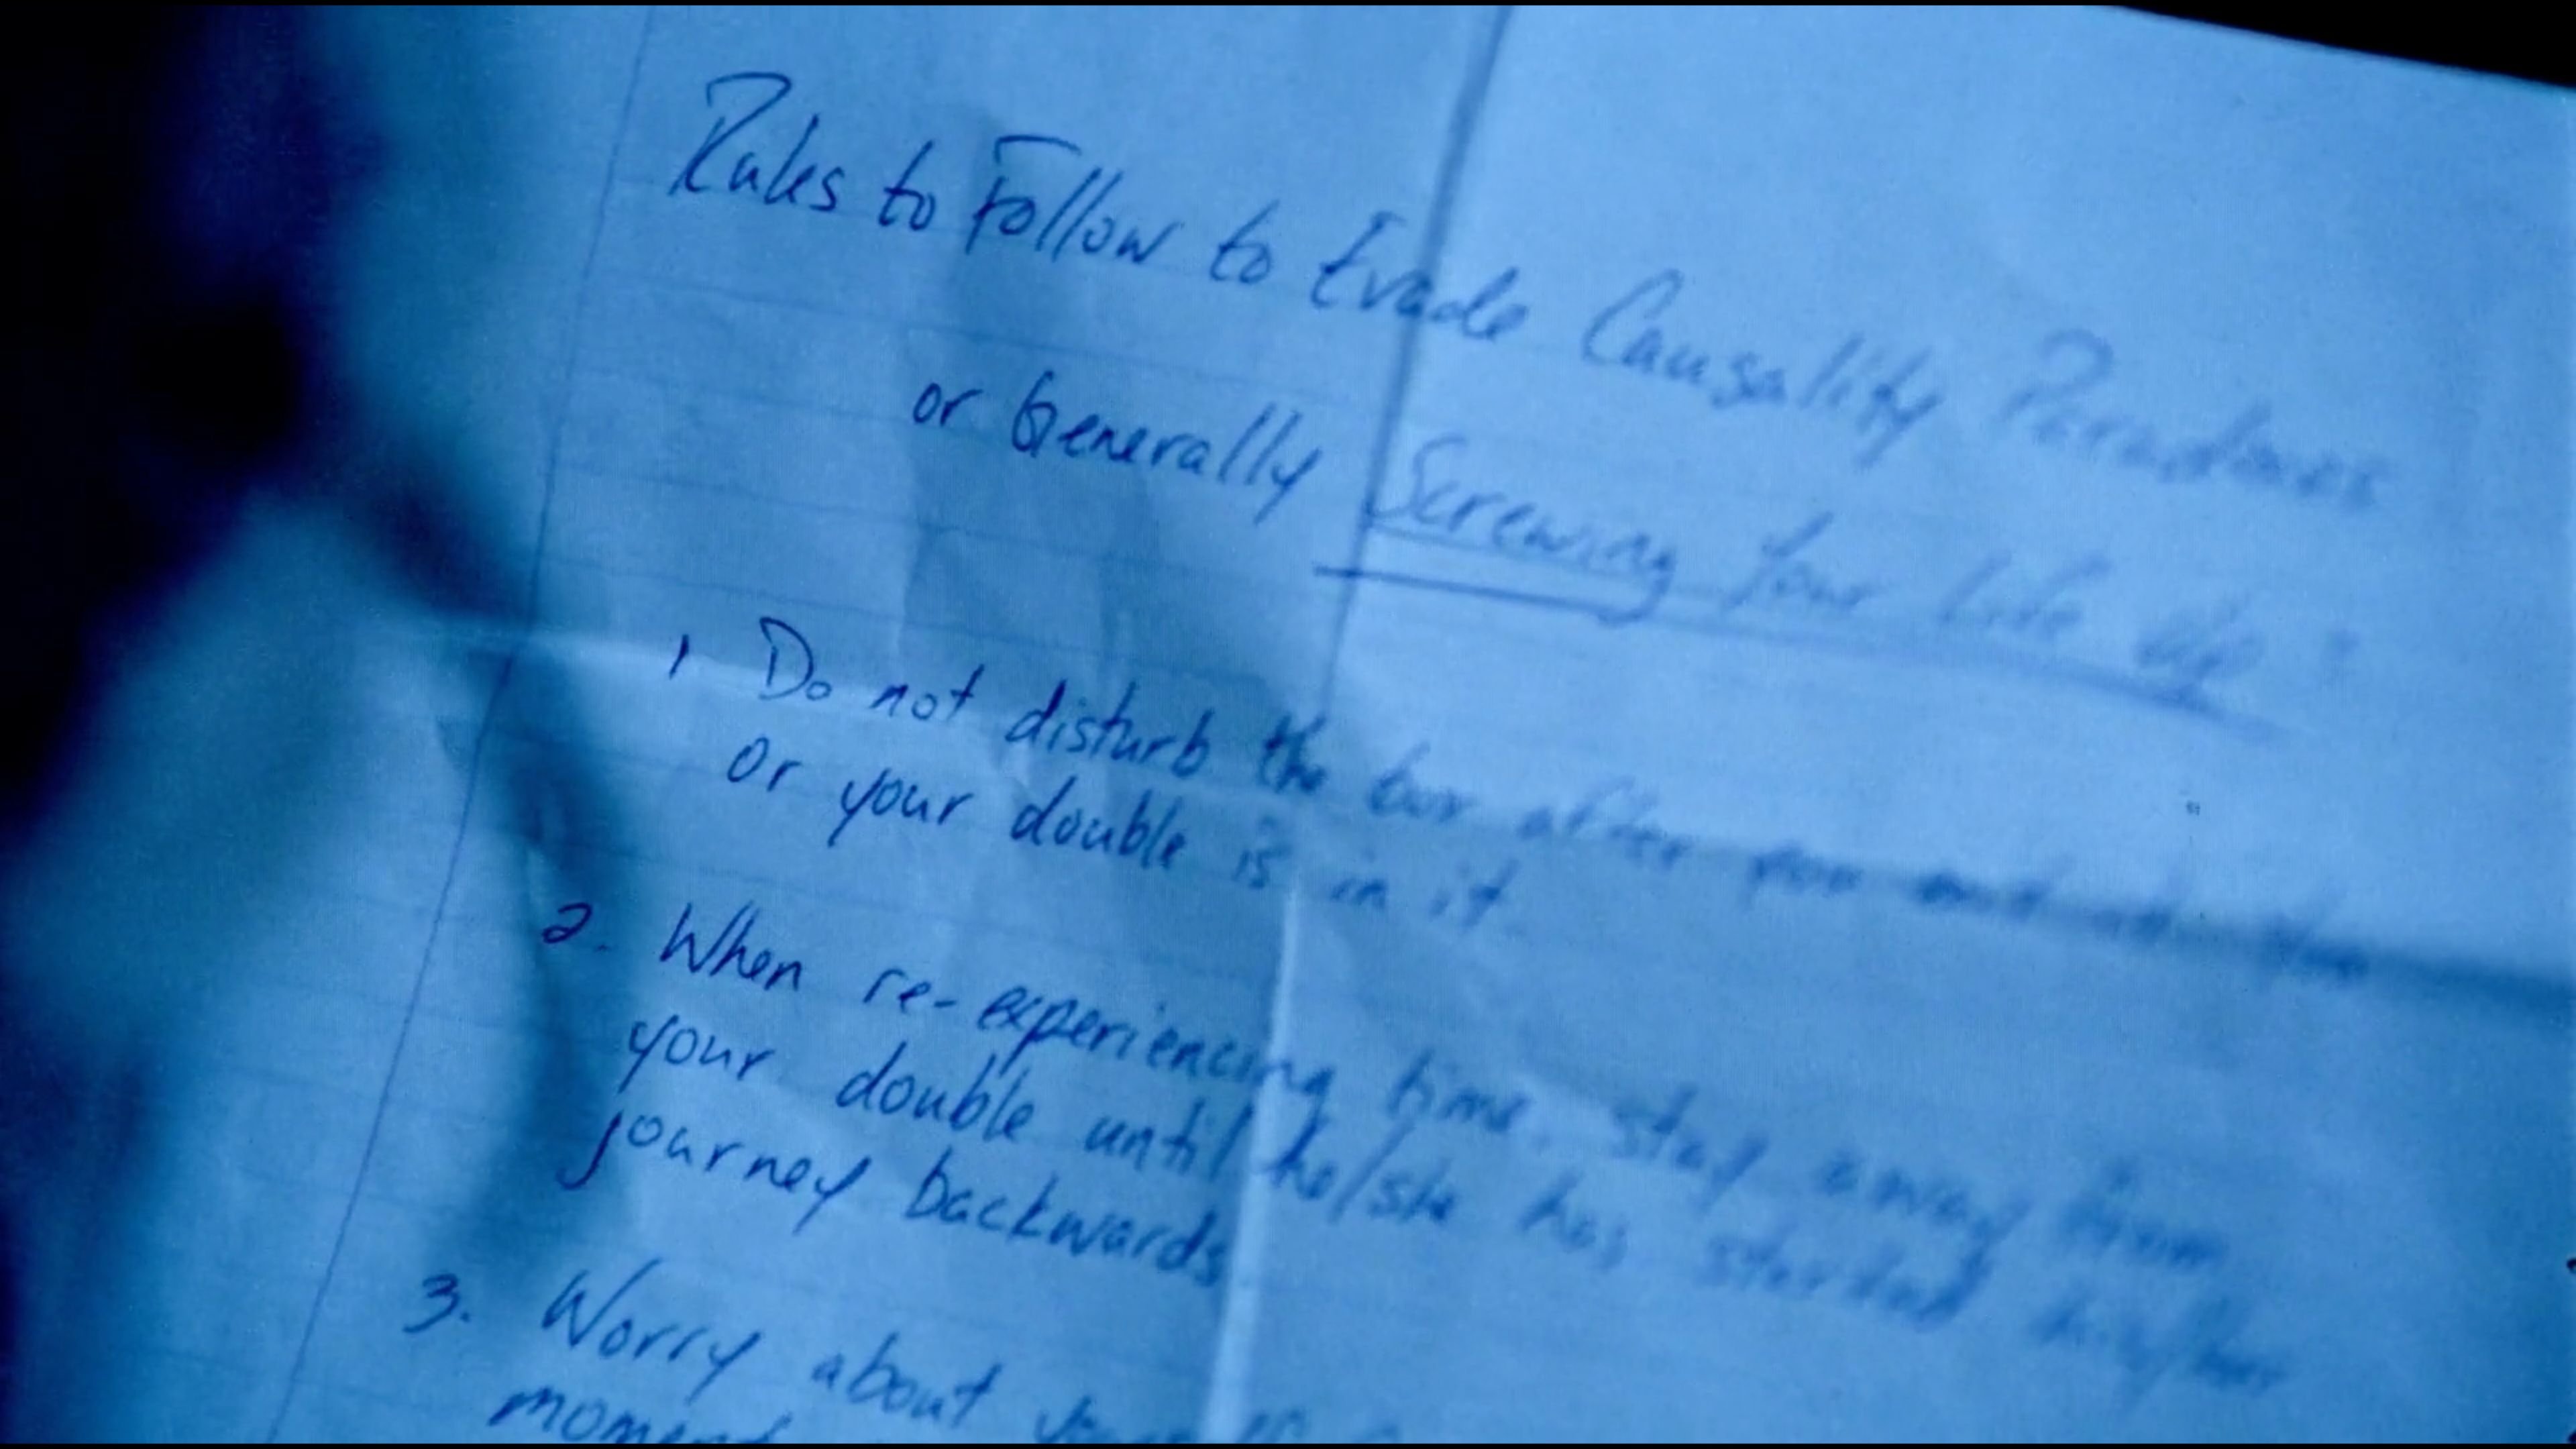 Rules to Follow to Evade Causality Paradoxes
or Generally Screwing Your Life Up
1 Do not disturb the after you
or your double is in it.
2. When re-experiencing time, stay away from
your double until he/she has started his/her
journey backwards
3. Worry about
moment